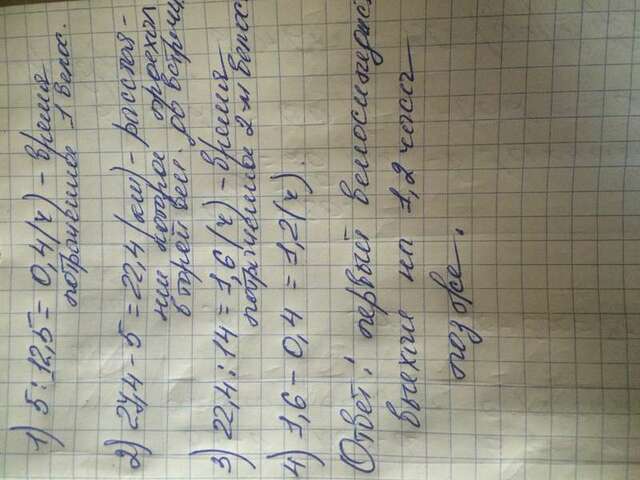 1) 5 : 12,5 = 0,4 (ч) - время
потраченное 1 велос.
2) 27,4 - 5 = 22,4 (км) - расстоя-
ние которое проехал
второй вел. до встречи
3) 22,4 : 14 = 1,6 (ч) - время
потраченное 2-м велос
4) 1,6 - 0,4 = 1,2 (ч).
Ответ: первый велосипедист
выехал на 1,2 часа
позже.